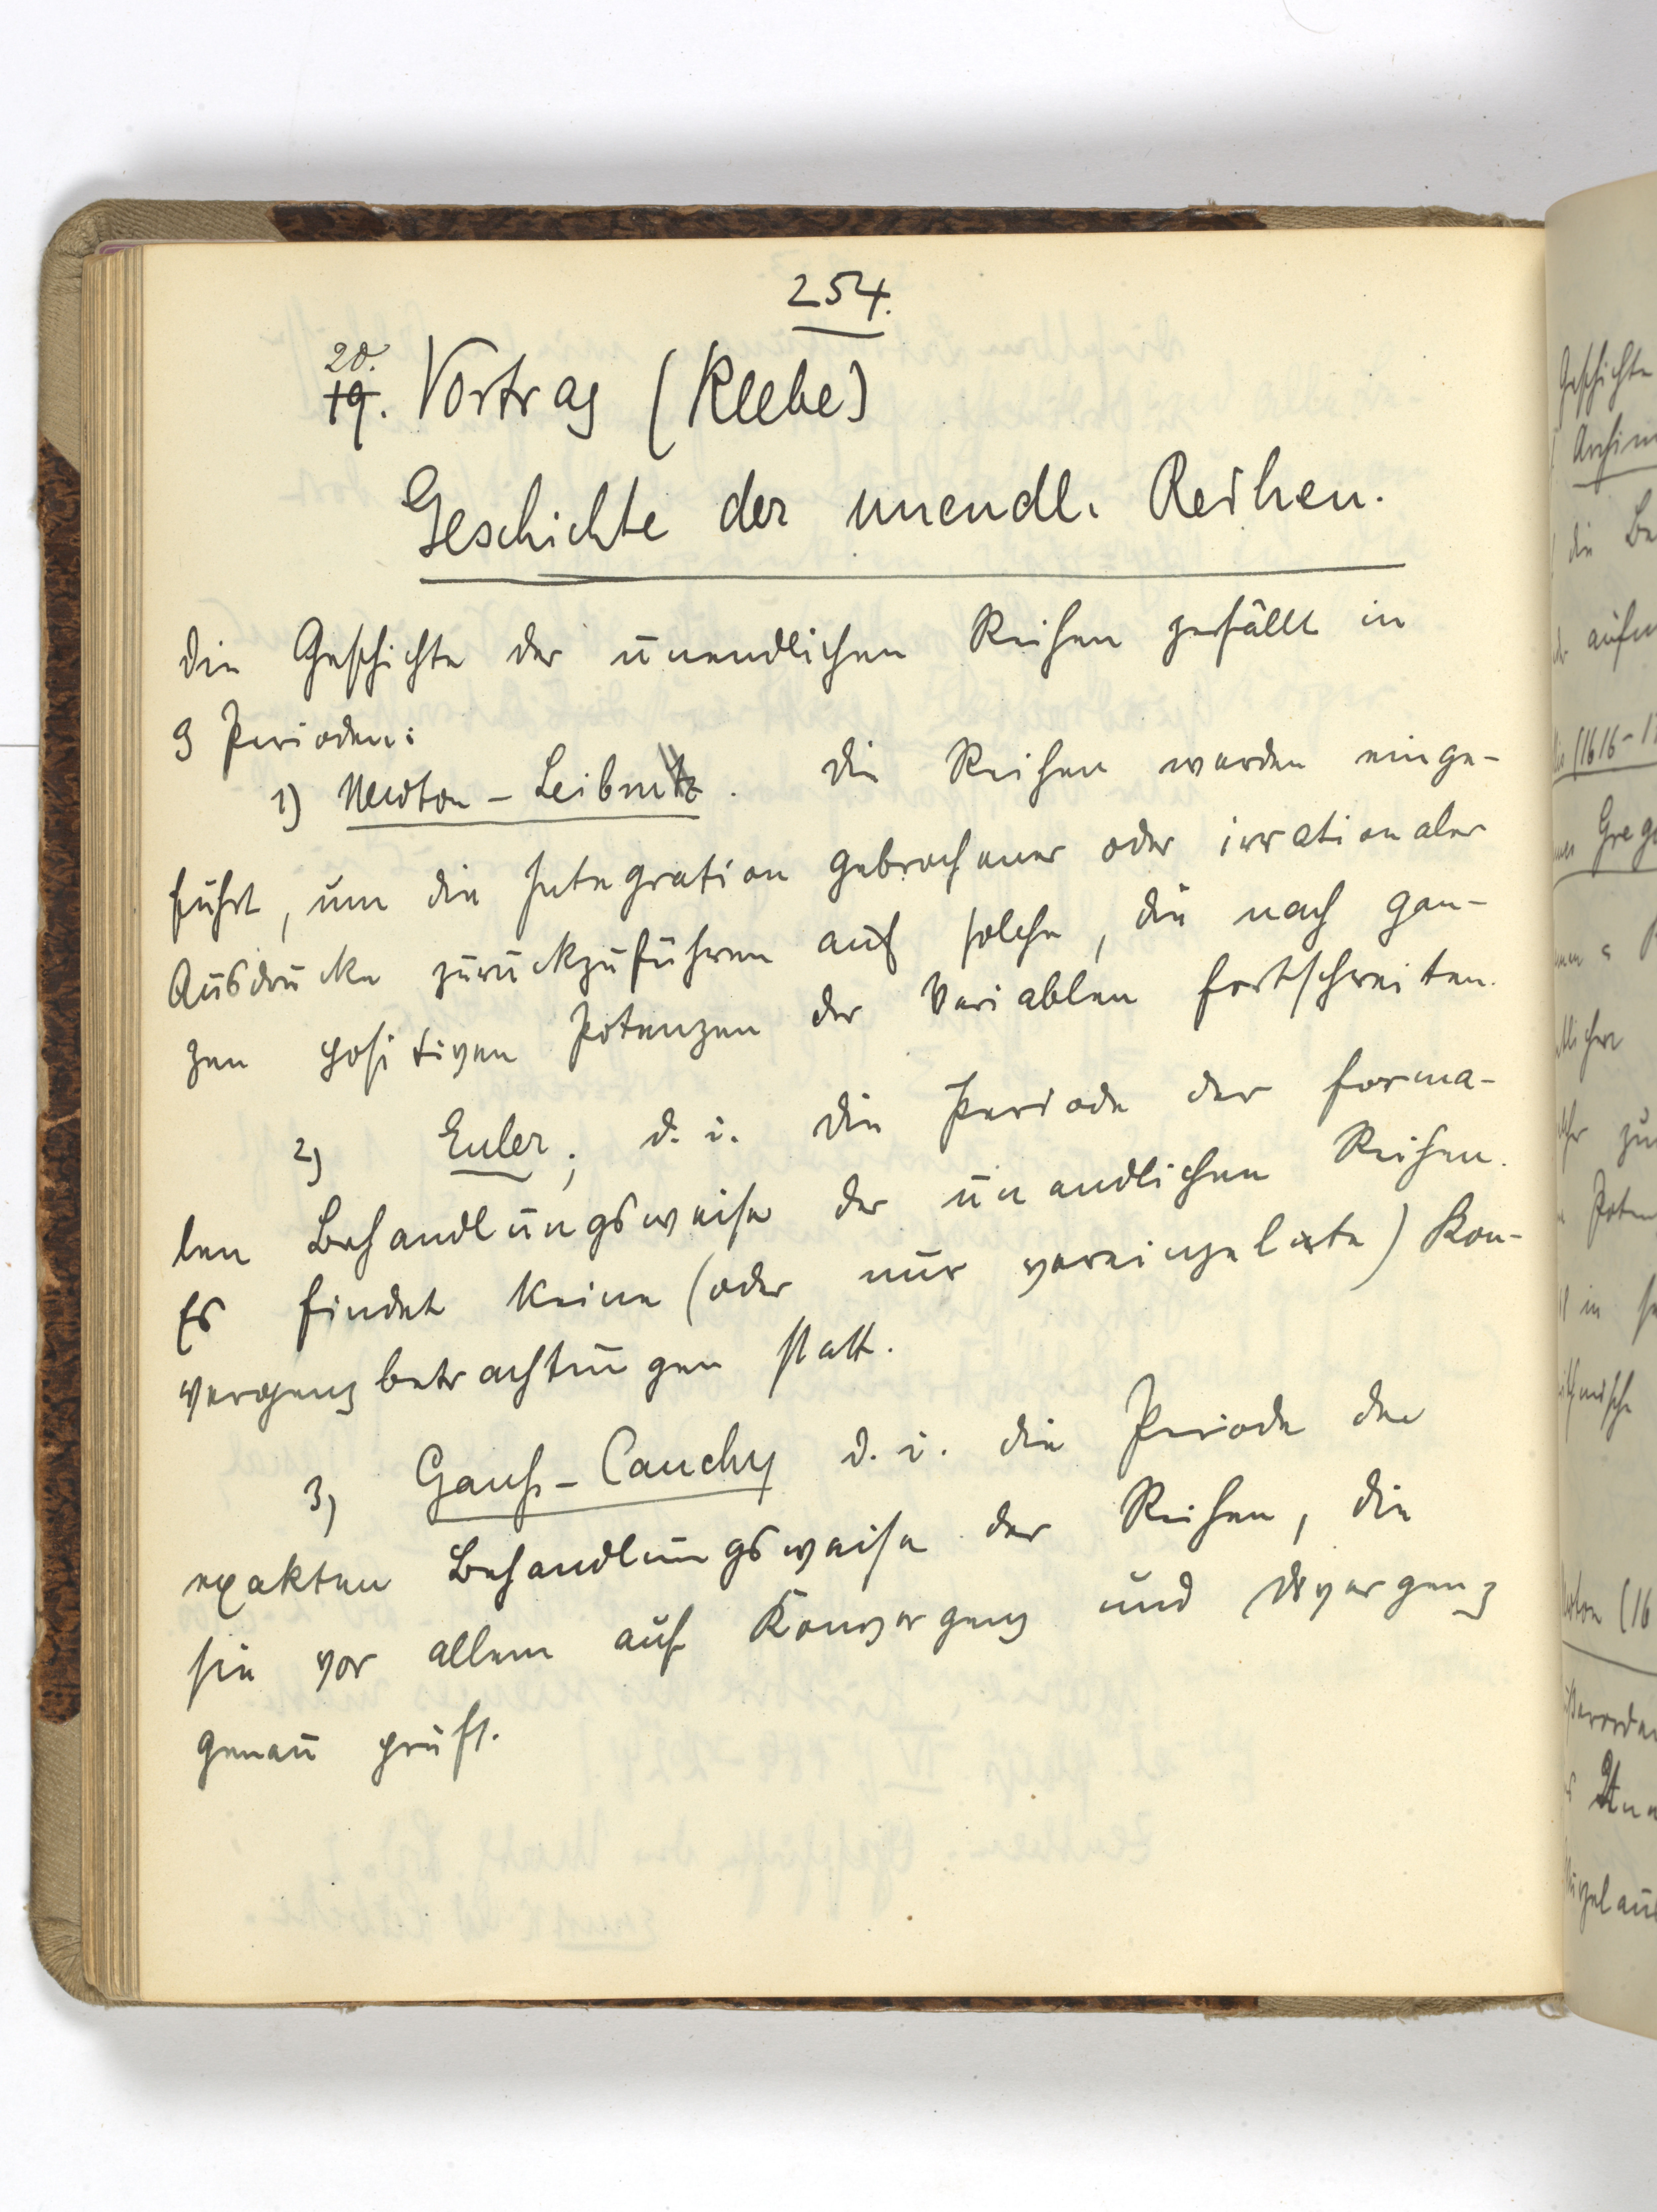 254.
20.
19. Vortrag (Klebe)
Geschichte der unendl. Reihen.
Die Geschichte der unendlichen Reihen zerfällt in
3 Perioden:
1) Newton – Leibnitz. Die Reihen werden einge-
führt, um die Integration gebrochener oder irrationaler
Ausdrücke zurückzuführen auf solche, die nach gan-
zen positiven Potenzen der Variablen fortschreiten.
2) Euler; d. i. die Periode der forma-
len Behandlungsweise der unendlichen Reihen.
Es findet keine (oder nur vereinzelte) Kon-
vergenzbetrachtungen statt.
3) Gauß – Cauchy d. i. die Periode der
exakten Behandlungsweise der Reihen, die
sie vor allem auf Konvergenz und Divergenz
genau prüft.
Geschichte
die
(1616-1
zu
in
(16